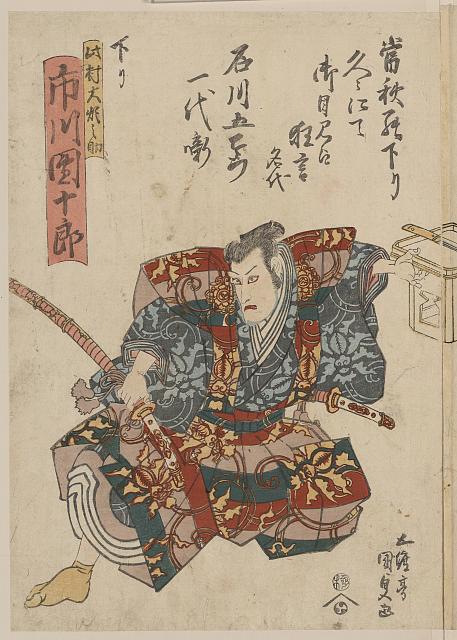 當秋登下り
久々にて
御目見得
狂言
名代
石川五右衛門
一代噺
下り
此村大炊之助
市川團十郎
五渡亭
國貞画
極